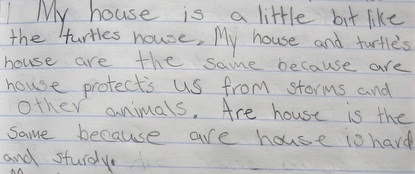 My house is a little bit like
the turtles house. My house and turtle's
house are the same because are
house protect's us from storms and
other animals. Are house is the
same because are house is hard
and sturdy.